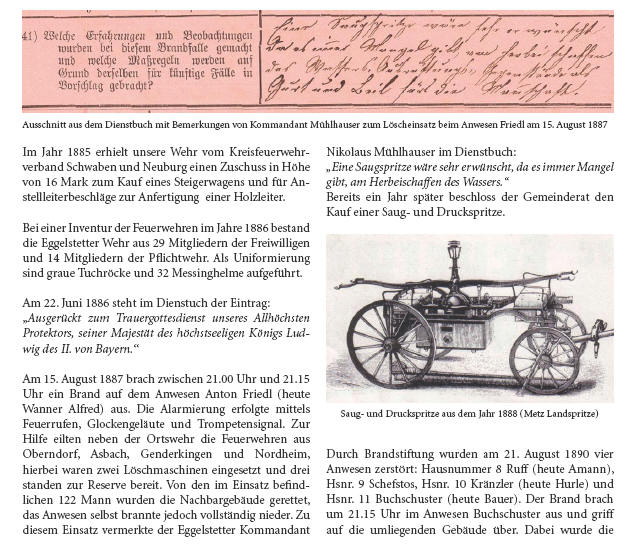 41) Welche Erfahrungen und Beobachtungen
wurden bei diesem Brandfalle gemacht
und welche Maßregeln werden auf
Grund derselben für künftige Fälle in
Vorschlag gebracht?
Eine Saugspritze wäre sehr erwünscht
da es immer Mangel gibt, am herbeischaffen
des Wassers. Ausrüstungs-Gegenstände als
Gurt und Beil für die Mannschaft.
Ausschnitt aus dem Dienstbuch mit Bemerkungen von Kommandant Mühlhauser zum Löscheinsatz beim Anwesen Friedl am 15. August 1887
Im Jahr 1885 erhielt unsere Wehr vom Kreisfeuerwehr-
verband Schwaben und Neuburg einen Zuschuss in Höhe
von 16 Mark zum Kauf eines Steigerwagens und für An-
stellleiterbeschläge zur Anfertigung einer Holzleiter.
Bei einer Inventur der Feuerwehren im Jahre 1886 bestand
die Eggelstetter Wehr aus 29 Mitgliedern der Freiwilligen
und 14 Mitgliedern der Pflichtwehr. Als Uniformierung
sind graue Tuchröcke und 32 Messinghelme aufgeführt.
Am 22. Juni 1886 steht im Dienstuch der Eintrag:
„Ausgerückt zum Trauergottesdienst unseres Allhöchsten
Protektors, seiner Majestät des höchstseeligen Königs Lud-
wig des II. von Bayern.“
Am 15. August 1887 brach zwischen 21.00 Uhr und 21.15
Uhr ein Brand auf dem Anwesen Anton Friedl (heute
Wanner Alfred) aus. Die Alarmierung erfolgte mittels
Feuerrufen, Glockengeläute und Trompetensignal. Zur
Hilfe eilten neben der Ortswehr die Feuerwehren aus
Oberndorf, Asbach, Genderkingen und Nordheim,
hierbei waren zwei Löschmaschinen eingesetzt und drei
standen zur Reserve bereit. Von den im Einsatz befind-
lichen 122 Mann wurden die Nachbargebäude gerettet,
das Anwesen selbst brannte jedoch vollständig nieder. Zu
diesem Einsatz vermerkte der Eggelstetter Kommandant
Nikolaus Mühlhauser im Dienstbuch:
„Eine Saugspritze wäre sehr erwünscht, da es immer Mangel
gibt, am Herbeischaffen des Wassers.“
Bereits ein Jahr später beschloss der Gemeinderat den
Kauf einer Saug- und Druckspritze.
Saug- und Druckspritze aus dem Jahr 1888 (Metz Landspritze)
Durch Brandstiftung wurden am 21. August 1890 vier
Anwesen zerstört: Hausnummer 8 Ruff (heute Amann),
Hsnr. 9 Schefstos, Hsnr. 10 Kränzler (heute Hurle) und
Hsnr. 11 Buchschuster (heute Bauer). Der Brand brach
um 21.15 Uhr im Anwesen Buchschuster aus und griff
auf die umliegenden Gebäude über. Dabei wurde die